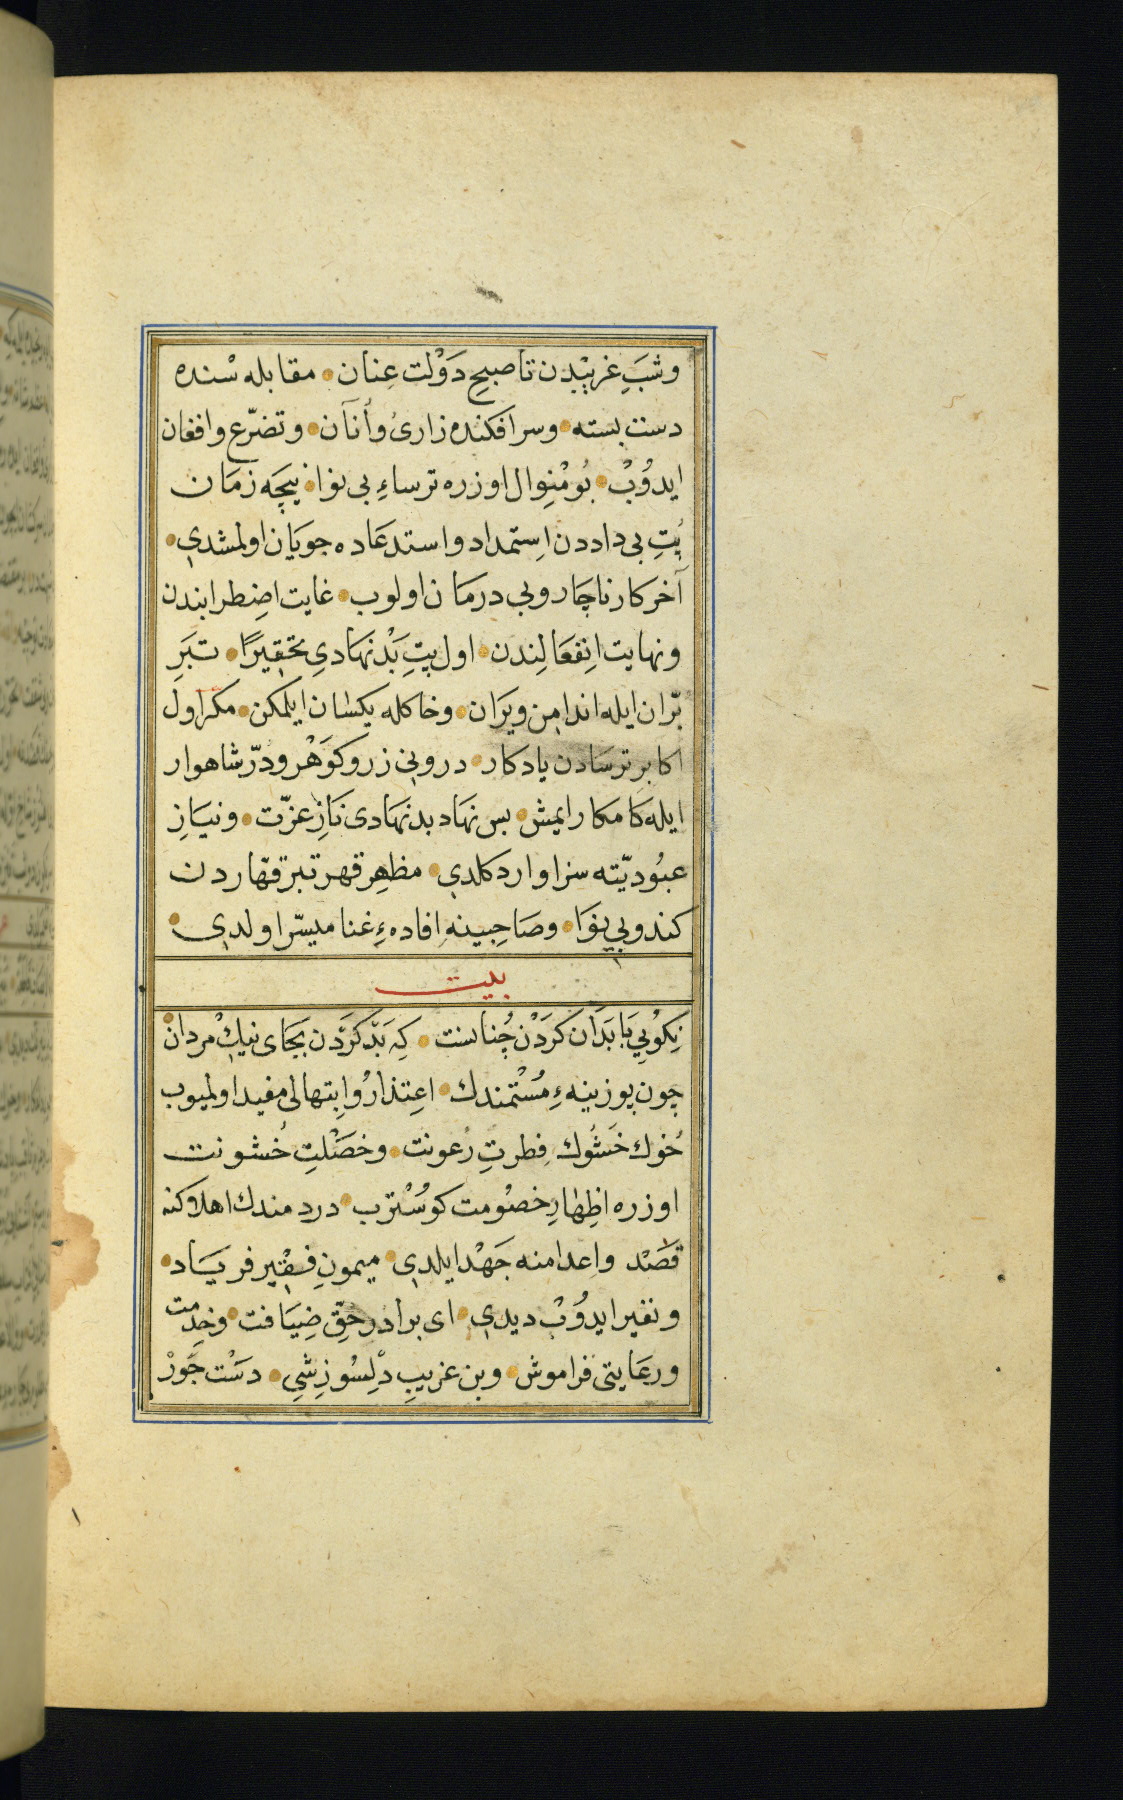 وشبَِ غریبْدن تا صبحِ دَوْلت عِنان • مقابله سْنده
دست بسته • وسرافکنده زاریُ وأنآن • وتضرّع وافغان
ایدوُبْ • بُو مْنِوال اوزره ترساءِ بی نوا • نیچَه زمَان
بُتِ بی داددن اِستمداد واستدعَاده جویَان اولمشدی •
آخر کار ناچار وبی درمَان اولوب • غایت اضِطرابندن
ونهایت اِنفعَالِندن • اول بتِ بَدْ نهَادیِ تحقیرًا • تبَرِ
بُرّان ایله اندامِن ویَران • وخاکله یکسان ایلمکن • مکر اول
اکابر ترسَادن یادکار • درونی زر وکوَهْر ودرّ شاهوار
ایله کامکار ایمش • بس نهاد بدنهادی نَازِ عزّت • ونیَازِ
عبُودیّته سزاوار دکلدی • مظهرِ قهر تبر قهّاردن
کندو بی نوَا • وصَاحِبینه اِفادهءِ غنا میسّر اولدی •
بیت
نِکوُیِی بَا بَدَان کَرَدْن چُنانست • کِه بَدْ کَرَدن بجَای نیكْ مردانْ
چون بوزینهءِ مُسْتمندك • اعتِذارُ وابِتهالی مفید اولمیوب
خُوك خَشُوك فِطرتِ رُعونت • وخصَلْتِ خُشونت
اوزره اظِهارِ خصُومت کوسُتْرب • دردمندك اهلاکنه
قَصَدْ واعدامنه جَهدْ ایلدی • میمونِ فقیر فریَاد •
ونفیر ایدوُبْ دیدی • ای برادر حقِّ ضِیَافت • وخدِمت
ورعَایتی فراموش • وبن غریبِ دلِسُوزِشیِ • دسَتْ جَورْ